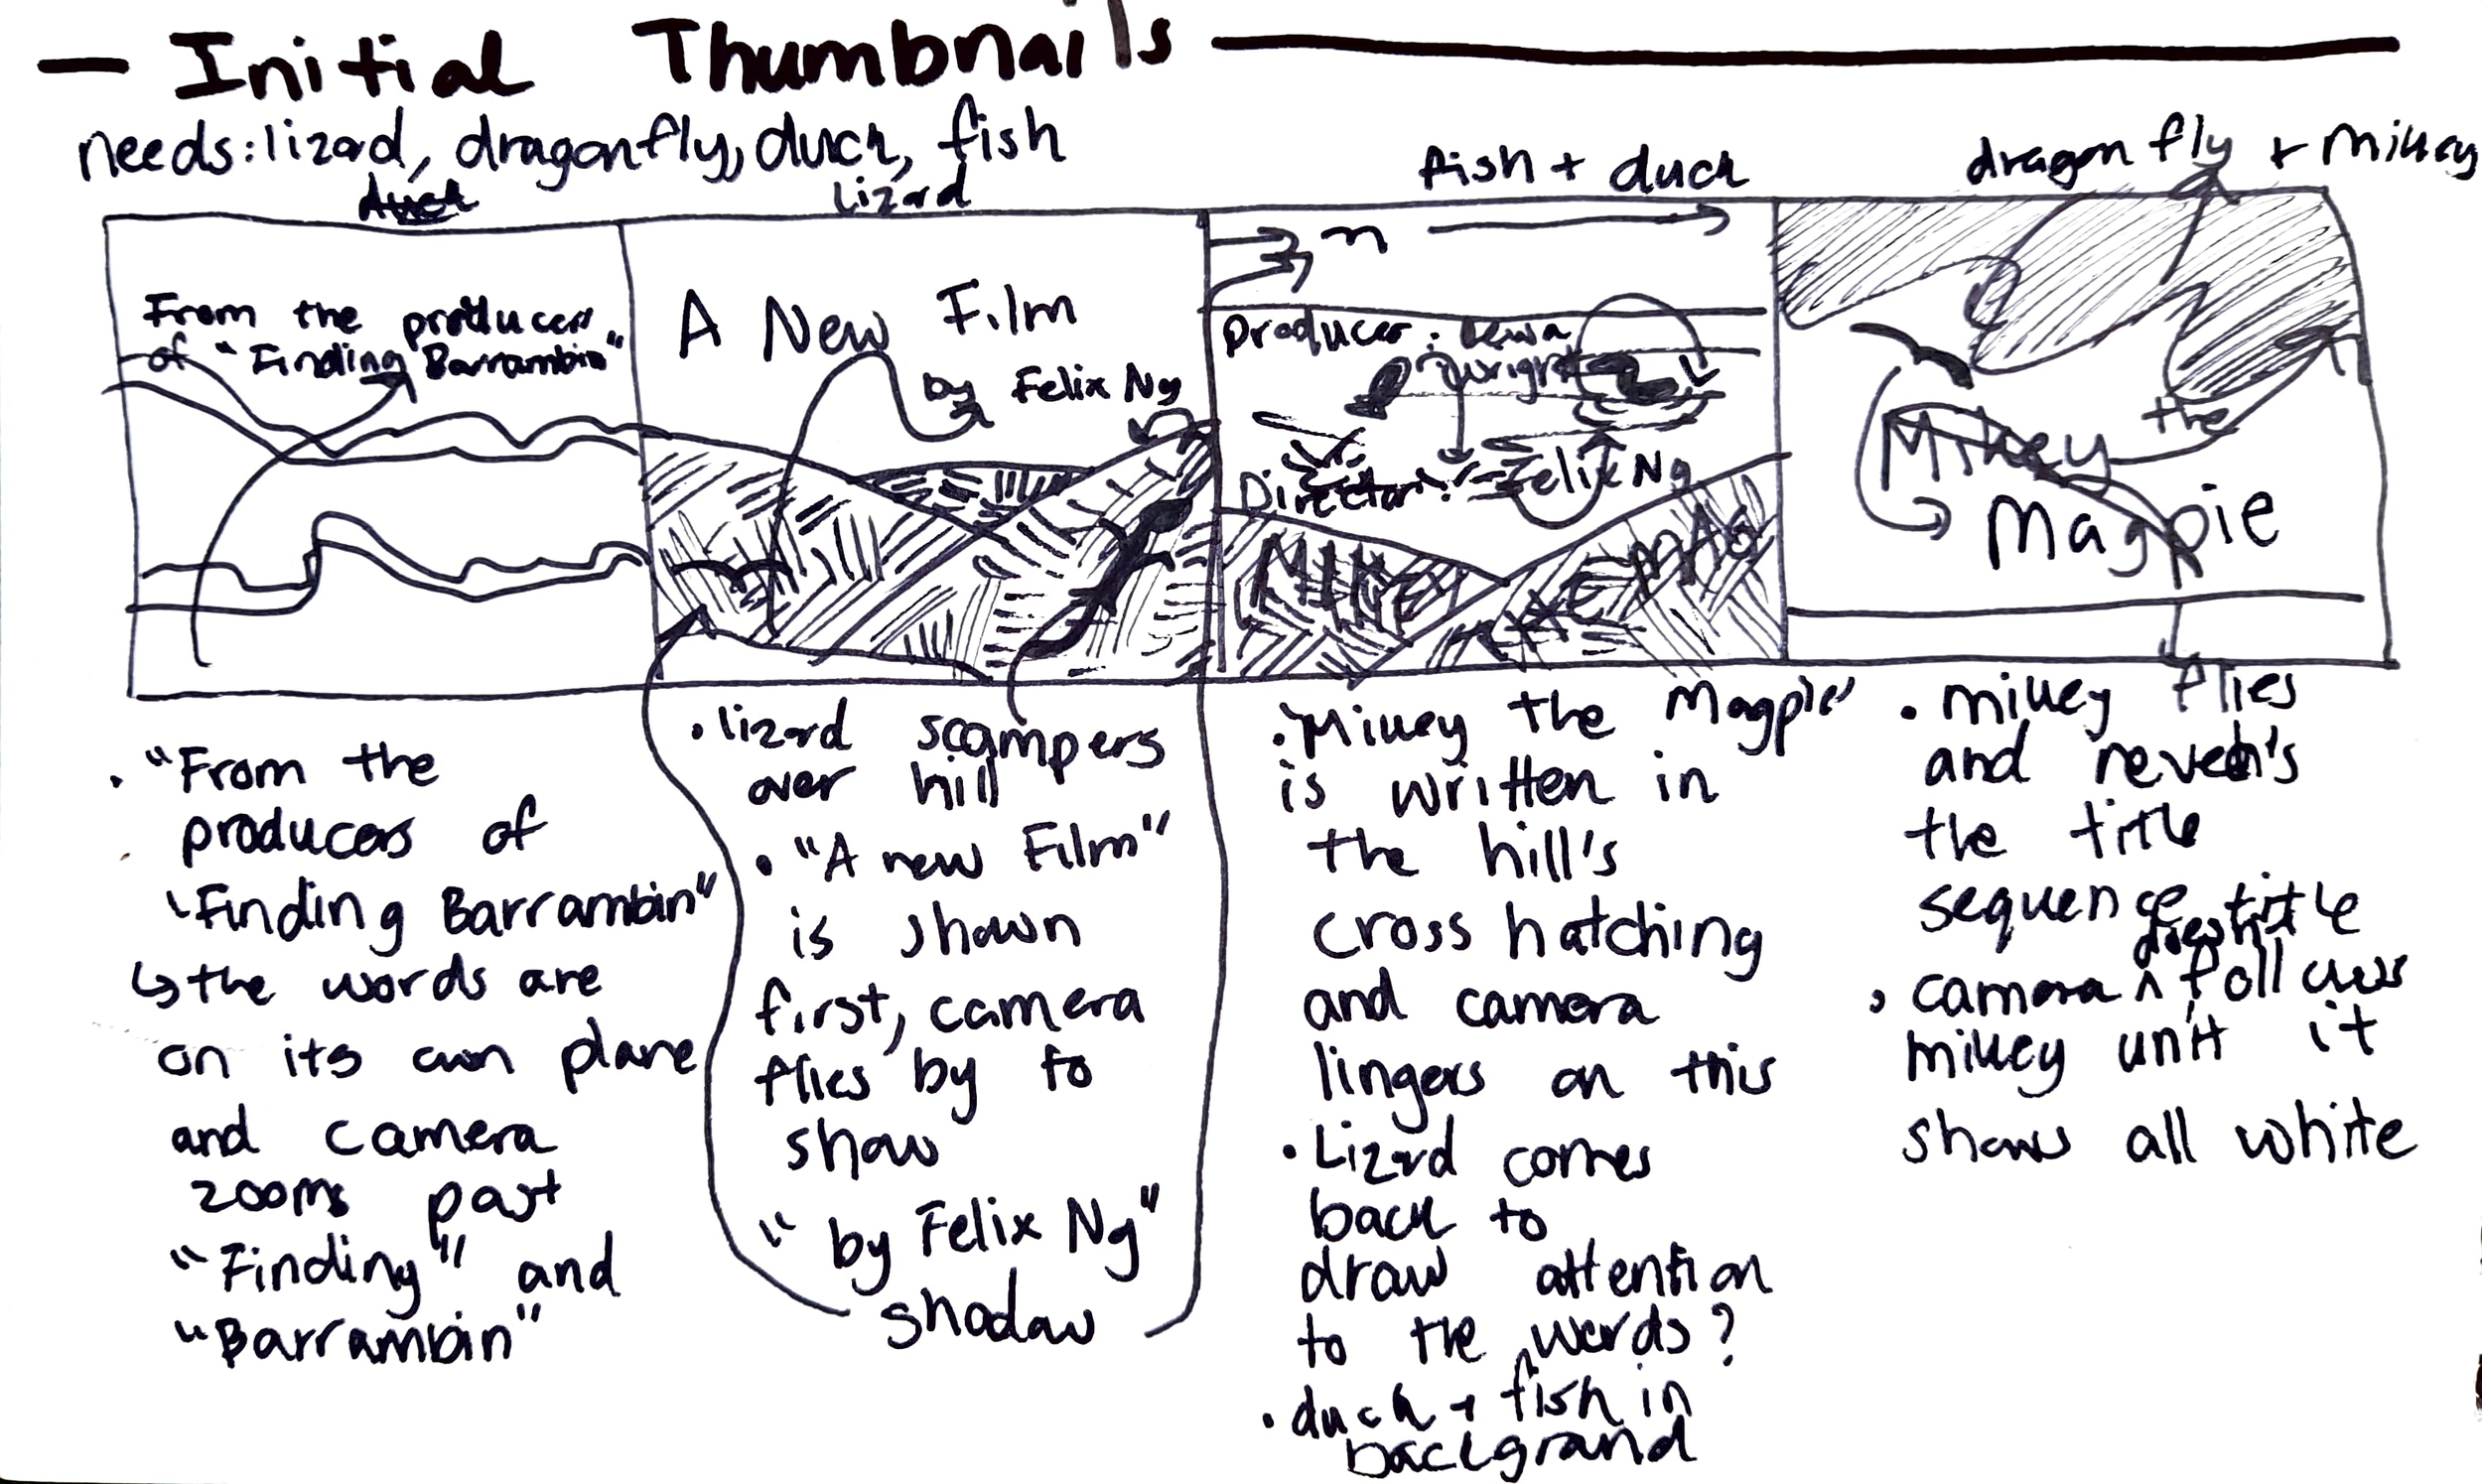 Initial Thumbnails
needs: lizard, dragonfly, duck, fish
duck
lizard
fish + duck
dragonfly + Mikey
From the producers
of "Finding Barrambin"
A New Film
by Felix Ng
Producer:
Director: Felix Ng
Mikey
the
Magpie
. "From the
producers of
"Finding Barrambin"
↳ the words are
on its own plane
and camera
zooms past
"Finding" and
"Barrambin"
• lizard scampers
over hill
• "A new Film"
is shown
first, camera
flies by to
show
"by Felix Ng"
shadow
. "Mikey the Magpie"
is written in
the hill's
cross hatching
and camera
lingers on this
• Lizard comes
back to
draw attention
to the words?
• duck + fish in
background
• mikey flies
and reveal's
the title
sequence title
doesn't
• camera ^ follows
mikey until it
shows all white